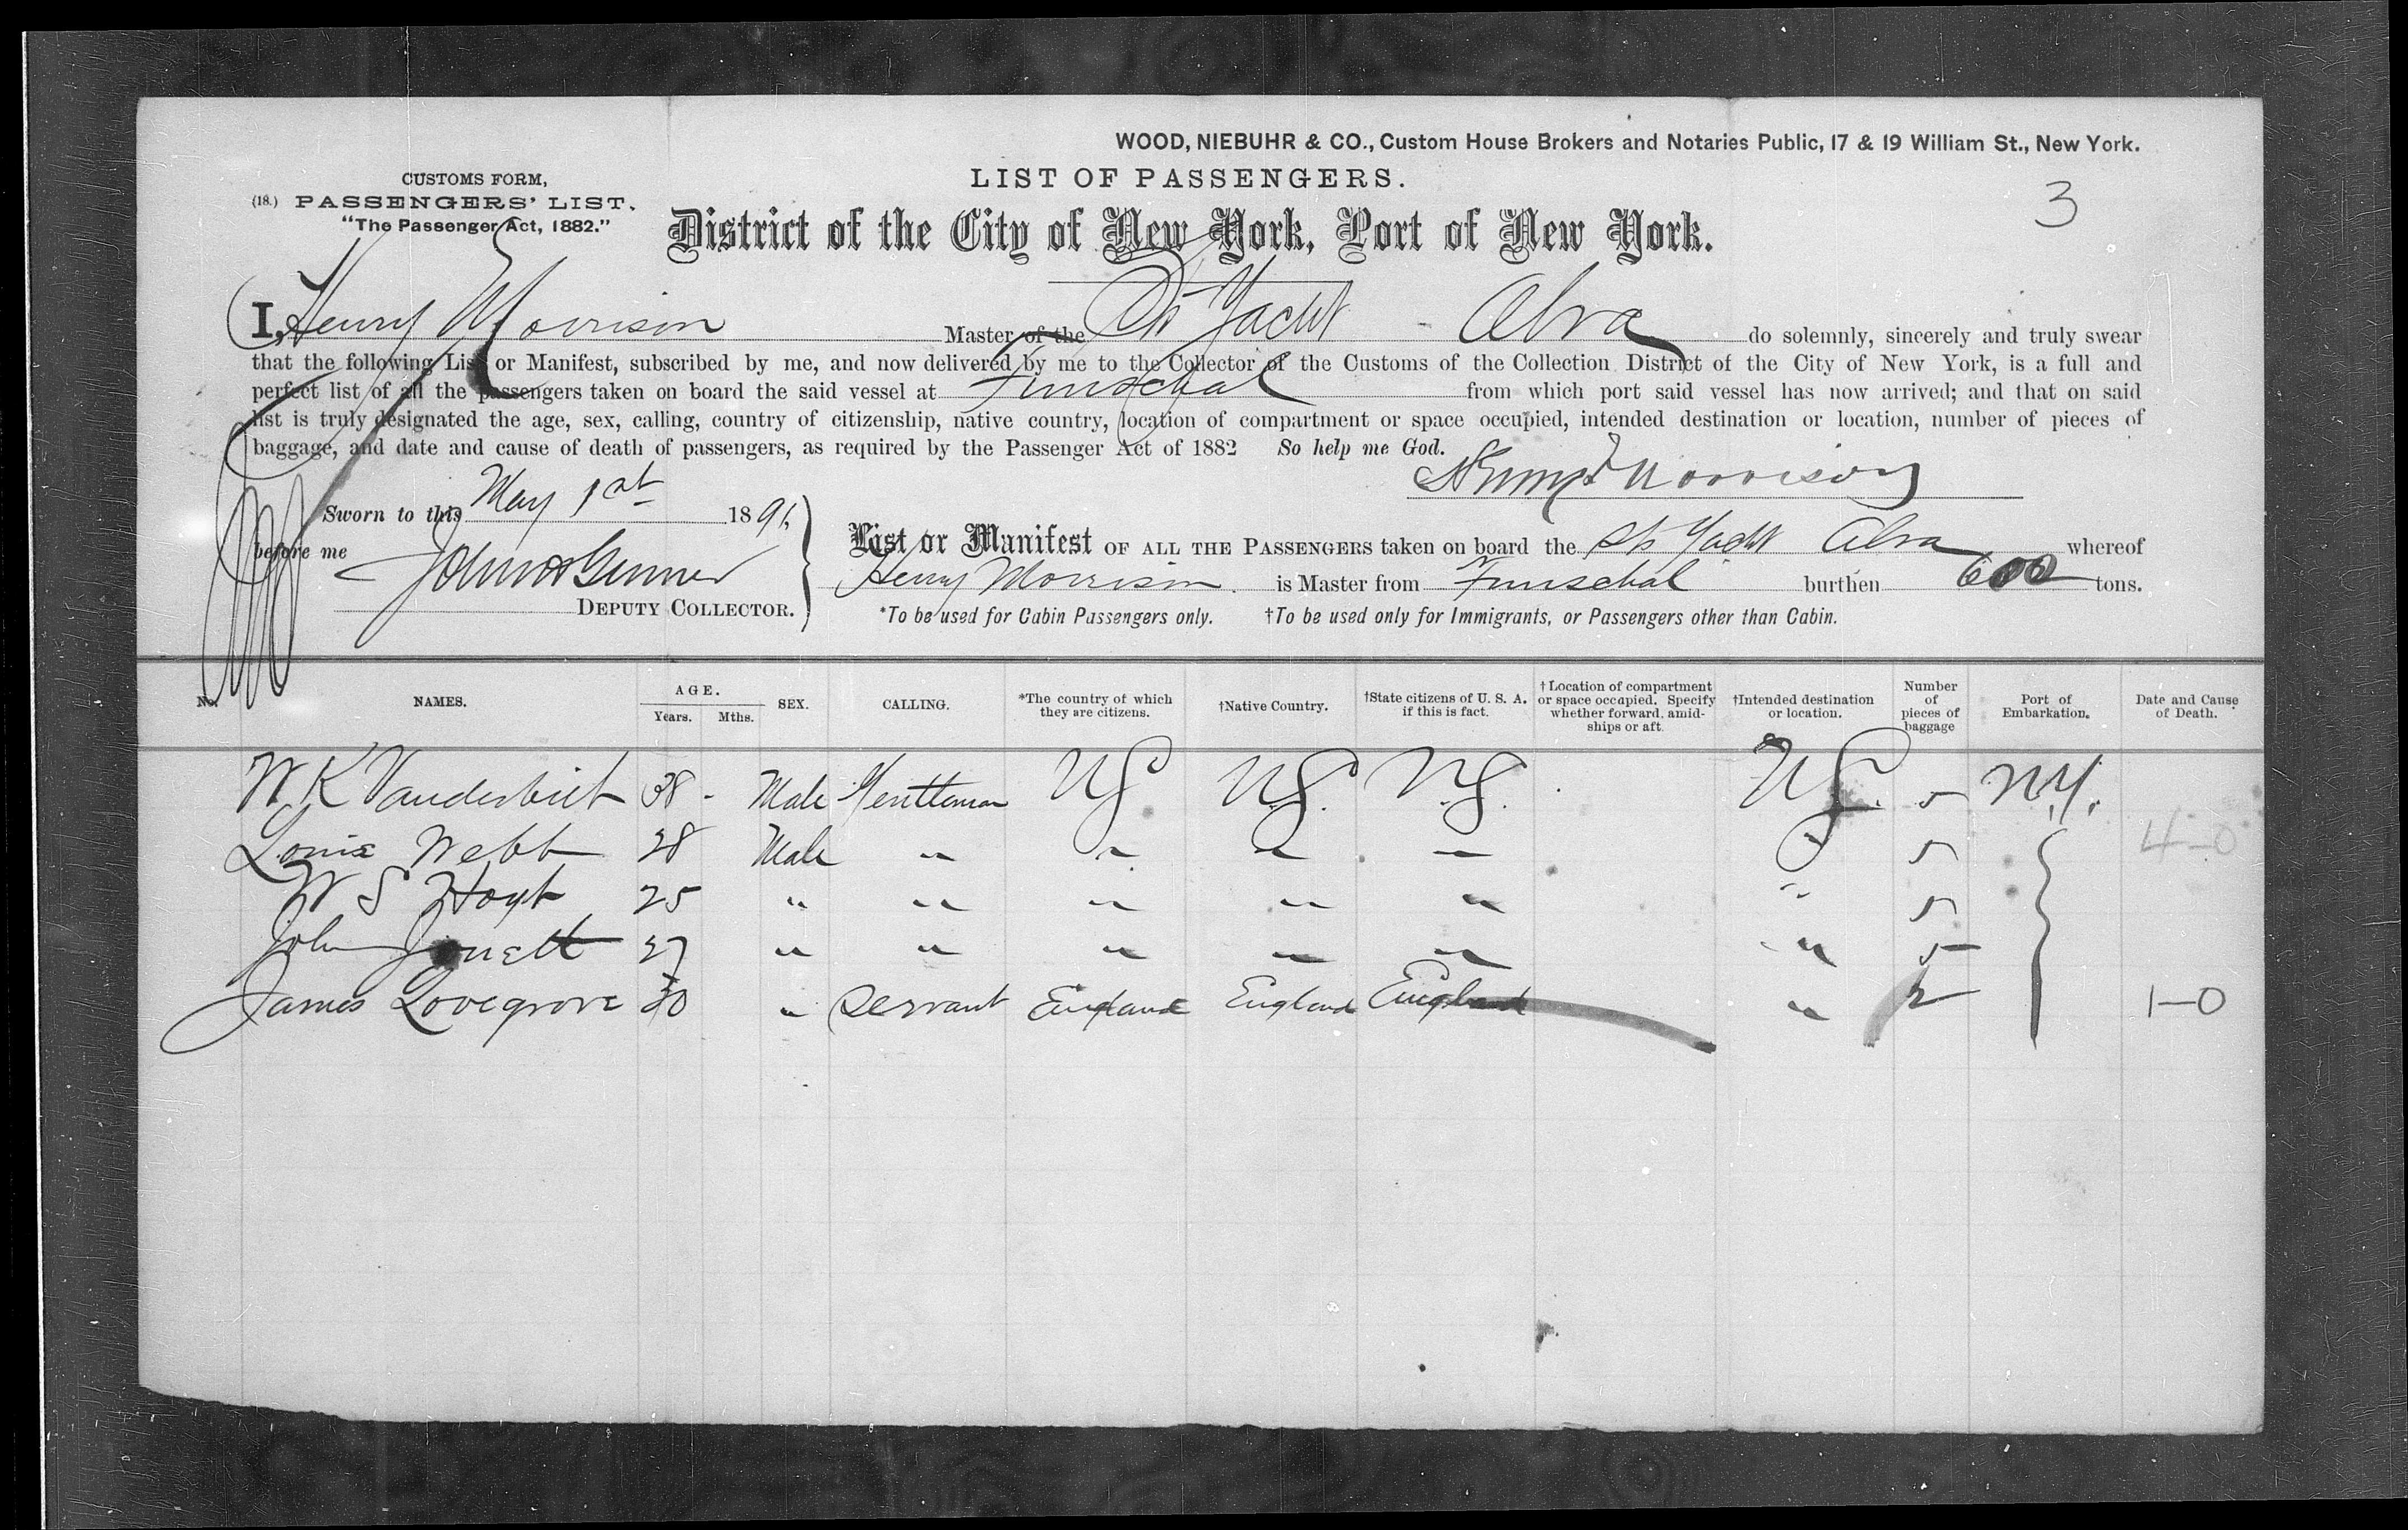 WOOD, NIEBUHR & CO., Custom House Brokers and Notaries Public, 17 & 19 William St., New York.
CUSTOMS FORM,
(18.) PASSENGERS' LIST.
"The Passenger Act, 1882."
LIST OF PASSENGERS.
3
District of the City of New York, Port of New York.
I, Henry Morrison Master of the St Yacht Alva do solemnly, sincerely and truly swear
that the following List or Manifest, subscribed by me, and now delivered by me to the Collector of the Customs of the Collection District of the City of New York, is a full and
perfect list of all the passengers taken on board the said vessel at Funschal from which port said vessel has now arrived; and that on said
list is truly designated the age, sex, calling, country of citizenship, native country, location of compartment or space occupied, intended destination or location, number of pieces of
baggage, and date and cause of death of passengers, as required by the Passenger Act of 1882 So help me God.
Henry Morrison
Sworn to this May 1st 1891
before me
DEPUTY COLLECTOR.
List or Manifest OF ALL THE PASSENGERS taken on board the St Yacht Alva whereof
Henry Morrison is Master from Funschal burthen 600 tons.
*To be used for Cabin Passengers only. †To be used only for Immigrants, or Passengers other than Cabin.
No. NAMES. AGE. Years. Mths. SEX. CALLING. *The country of which they are citizens. †Native Country. †State citizens of U. S. A. if this is fact. †Location of compartment or space occupied. Specify whether forward, amidships or aft. †Intended destination or location. Number of pieces of baggage Port of Embarkation. Date and Cause of Death.
W K Vanderbilt 38 - Male Gentleman US US. US. US. 5 N.Y.
Louis Webb 28 Male " " " " " 5 4-0
W S Hoyt 25 " " " " " " 5
John Jouett 27 " " " " " " 5
James Lovegrove 30 " Servant England England England " 2 1-0